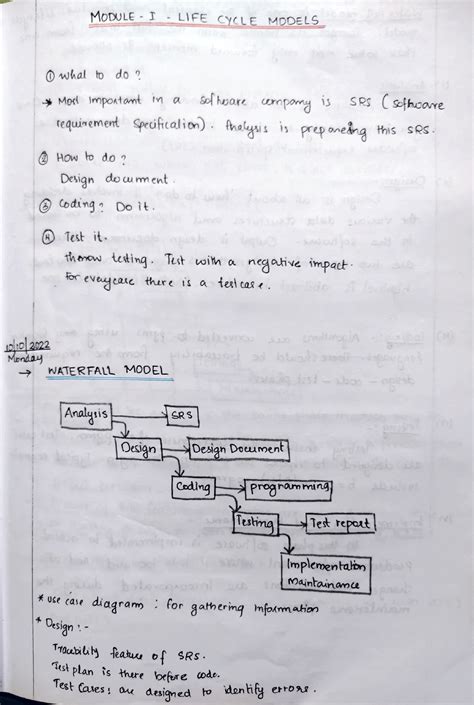 MODULE - I - LIFE CYCLE MODELS
① What to do ?
* Most important in a software company is SRS ( software
requirement Specification). Analysis is prepareing this SRS.
② How to do ?
Design document.
③ Coding? Do it.
④ Test it.
testing. Test with a negative impact.
For everycase there is a testcase.
10/10/2022
Monday
→ WATERFALL MODEL
Analysis → SRS
Design → Design Document
Coding → programming
Testing → Test report
Implementation
Maintainance
* use case diagram : for gathering information
* Design :-
feature of SRS.
Test plan is there before code.
Test Cases: are designed to identify errors.